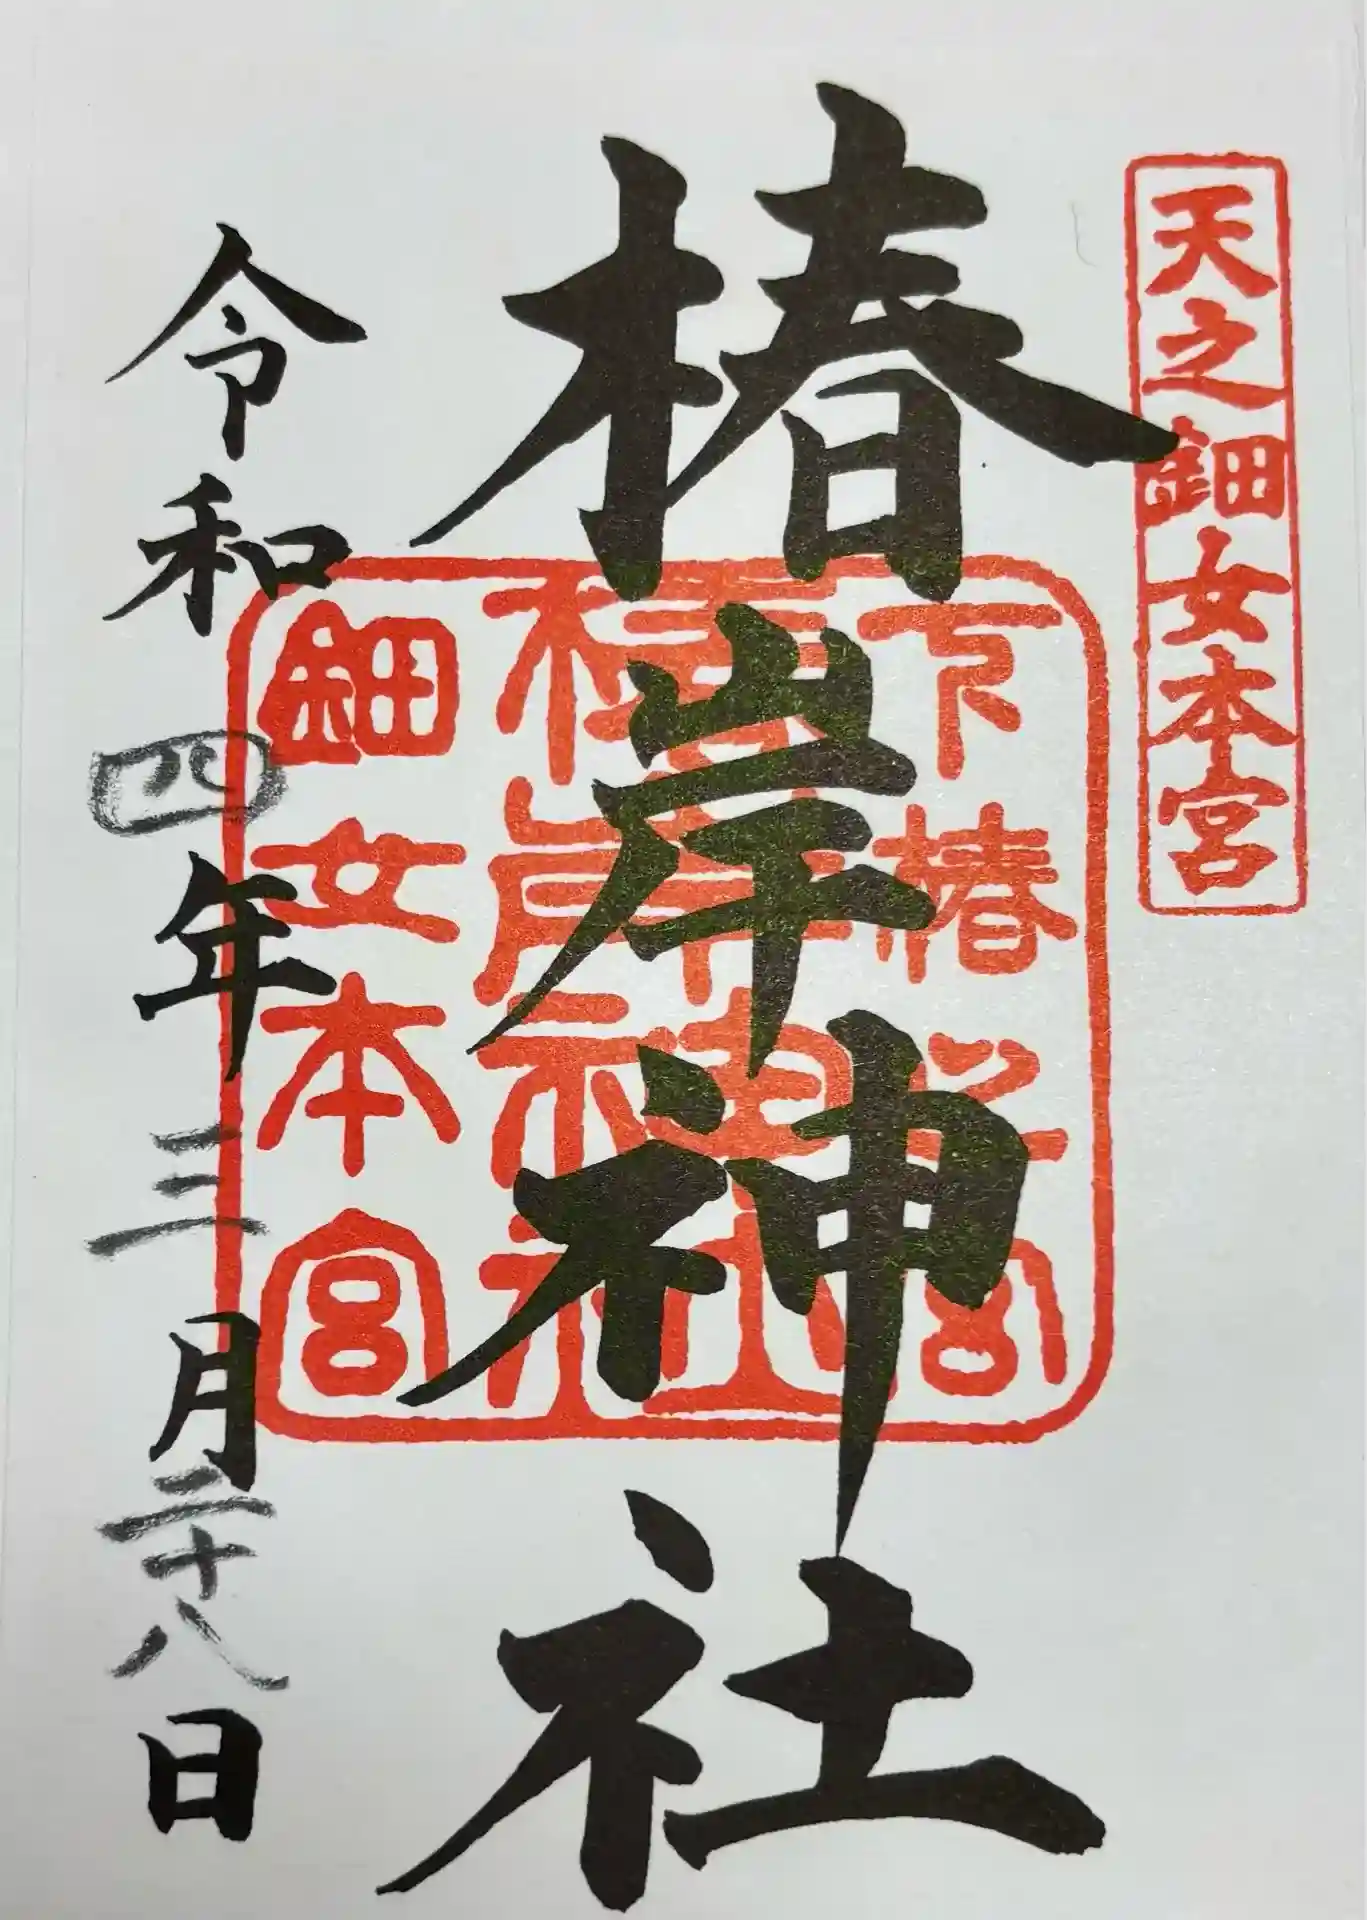 天之鈿女本宮
椿岸神社
下椿
椿岸神社
鈿女本宮
令和四年三月二十八日